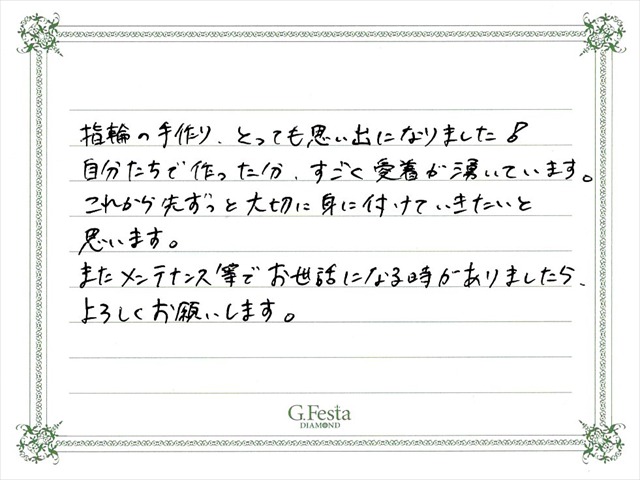 指輪の手作り、とっても思い出になりました♪
自分たちで作った分、すごく受着が湧いています。
これから先ずっと大切に身に付けていきたいと
思います。
またメンテナンス等でお世話になる時がありましたら、
よろしくお願いします。
G.Festa
DIAMOND